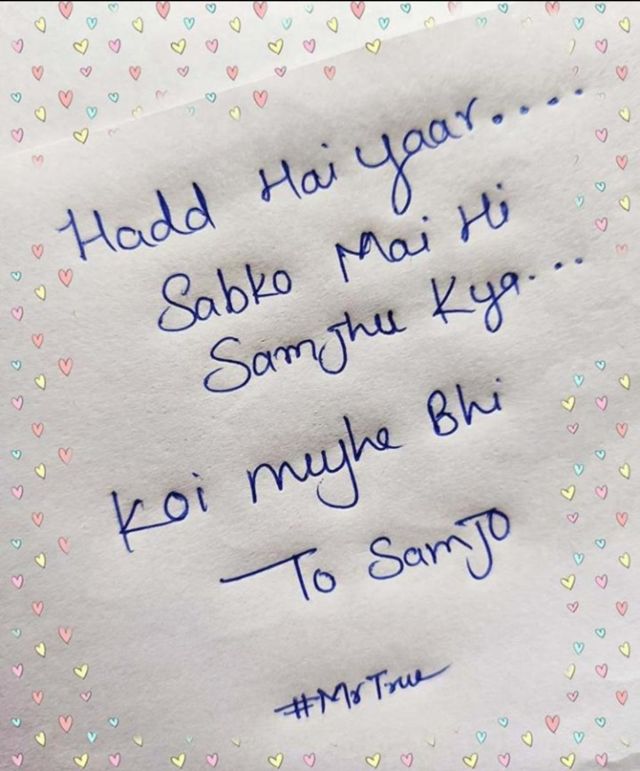 Hadd Hai yaar....
Sabko Mai Hi
Samjhu Kya...
Koi mujhe Bhi
To Samjo
#MrTrue